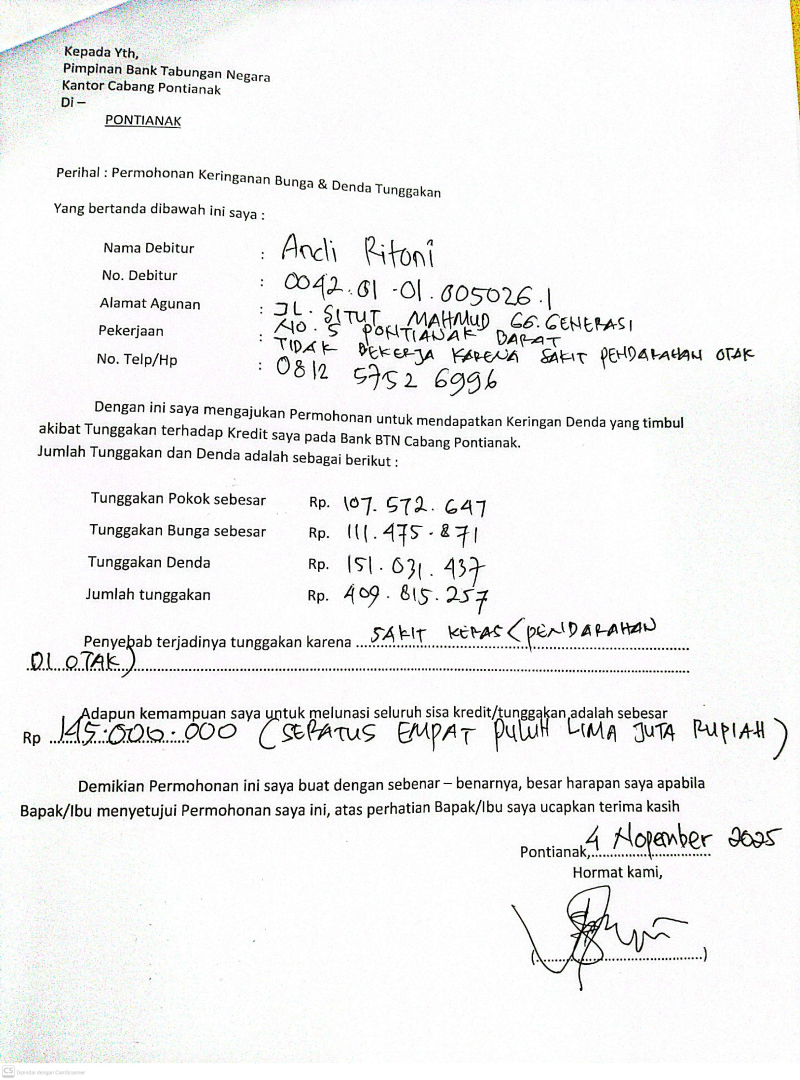 Kepada Yth,
Pimpinan Bank Tabungan Negara
Kantor Cabang Pontianak
Di –
PONTIANAK
Perihal : Permohonan Keringanan Bunga & Denda Tunggakan
Yang bertanda dibawah ini saya :
Nama Debitur : Andi Ritoni
No. Debitur : 0042.01-01.005026.1
Alamat Agunan : JL. SITUT MAHMUD GG.GENERASI
NO. 5 PONTIANAK DARAT
Pekerjaan : TIDAK BEKERJA KARENA SAKIT PENDARAHAN OTAK
No. Telp/Hp : 0812 5752 6996
Dengan ini saya mengajukan Permohonan untuk mendapatkan Keringan Denda yang timbul
akibat Tunggakan terhadap Kredit saya pada Bank BTN Cabang Pontianak.
Jumlah Tunggakan dan Denda adalah sebagai berikut :
Tunggakan Pokok sebesar Rp. 107.572.647
Tunggakan Bunga sebesar Rp. 111.475.871
Tunggakan Denda Rp. 151.031.437
Jumlah tunggakan Rp. 409.815.257
Penyebab terjadinya tunggakan karena SAKIT KERAS (PENDARAHAN
DI OTAK)
Adapun kemampuan saya untuk melunasi seluruh sisa kredit/tunggakan adalah sebesar
Rp 145.000.000 (SERATUS EMPAT PULUH LIMA JUTA RUPIAH)
Demikian Permohonan ini saya buat dengan sebenar – benarnya, besar harapan saya apabila
Bapak/Ibu menyetujui Permohonan saya ini, atas perhatian Bapak/Ibu saya ucapkan terima kasih
Pontianak, 4 Nopember 2025
Hormat kami,
(..............................)
CS Dipindai dengan CamScanner